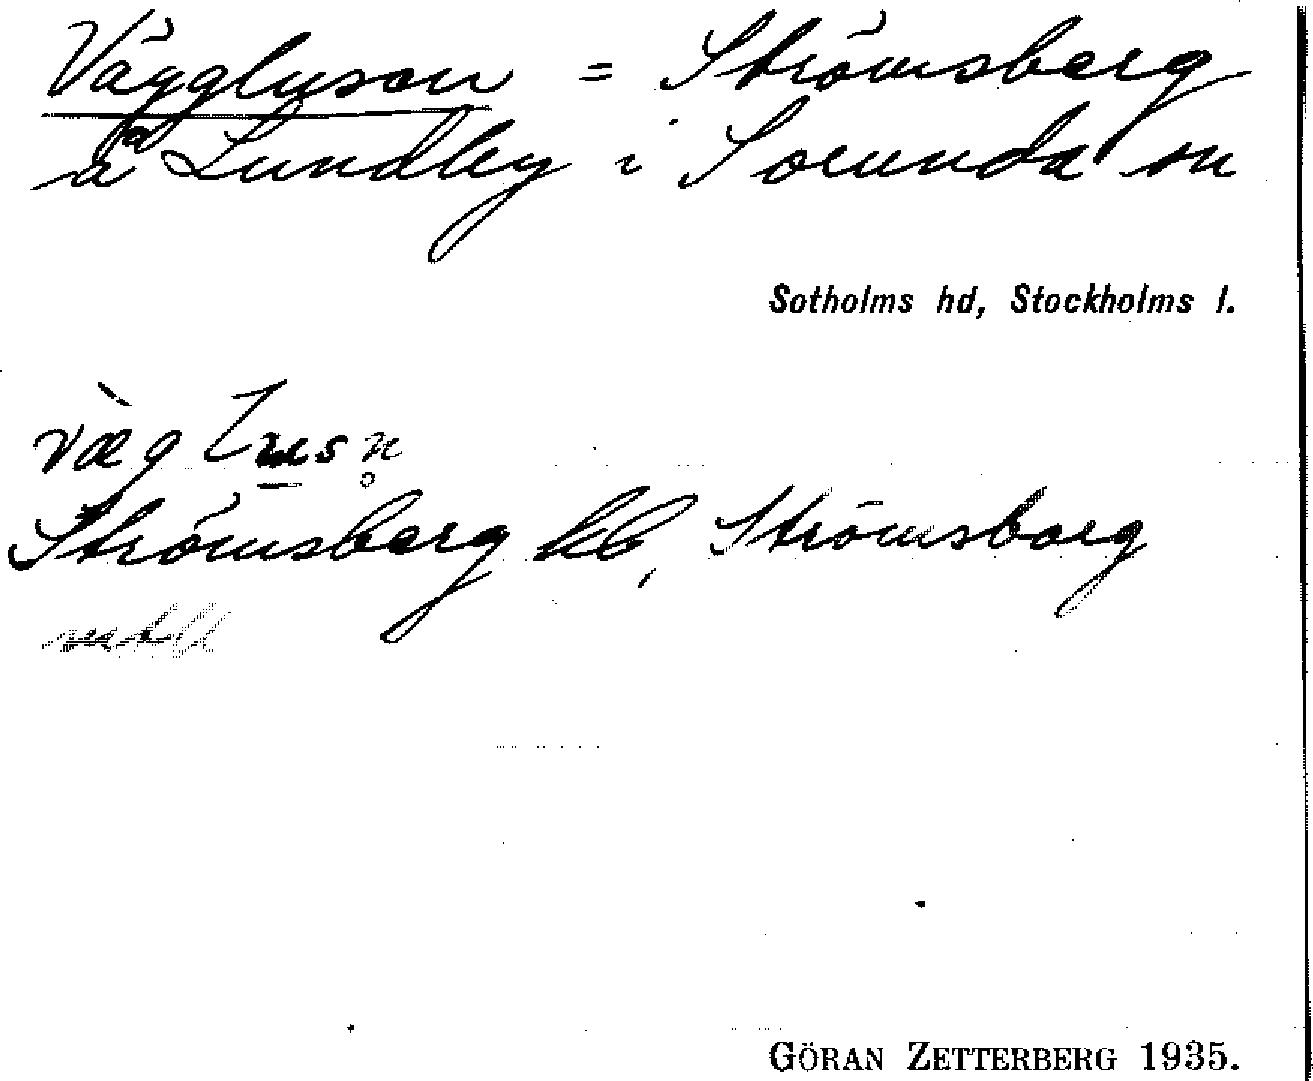 Vägglusen = Strömsberg
å Lundby i Sorunda sn
Sotholms hd, Stockholms l.
Strömsberg kb, Strömsborg
GÖRAN ZETTERBERG 1935.